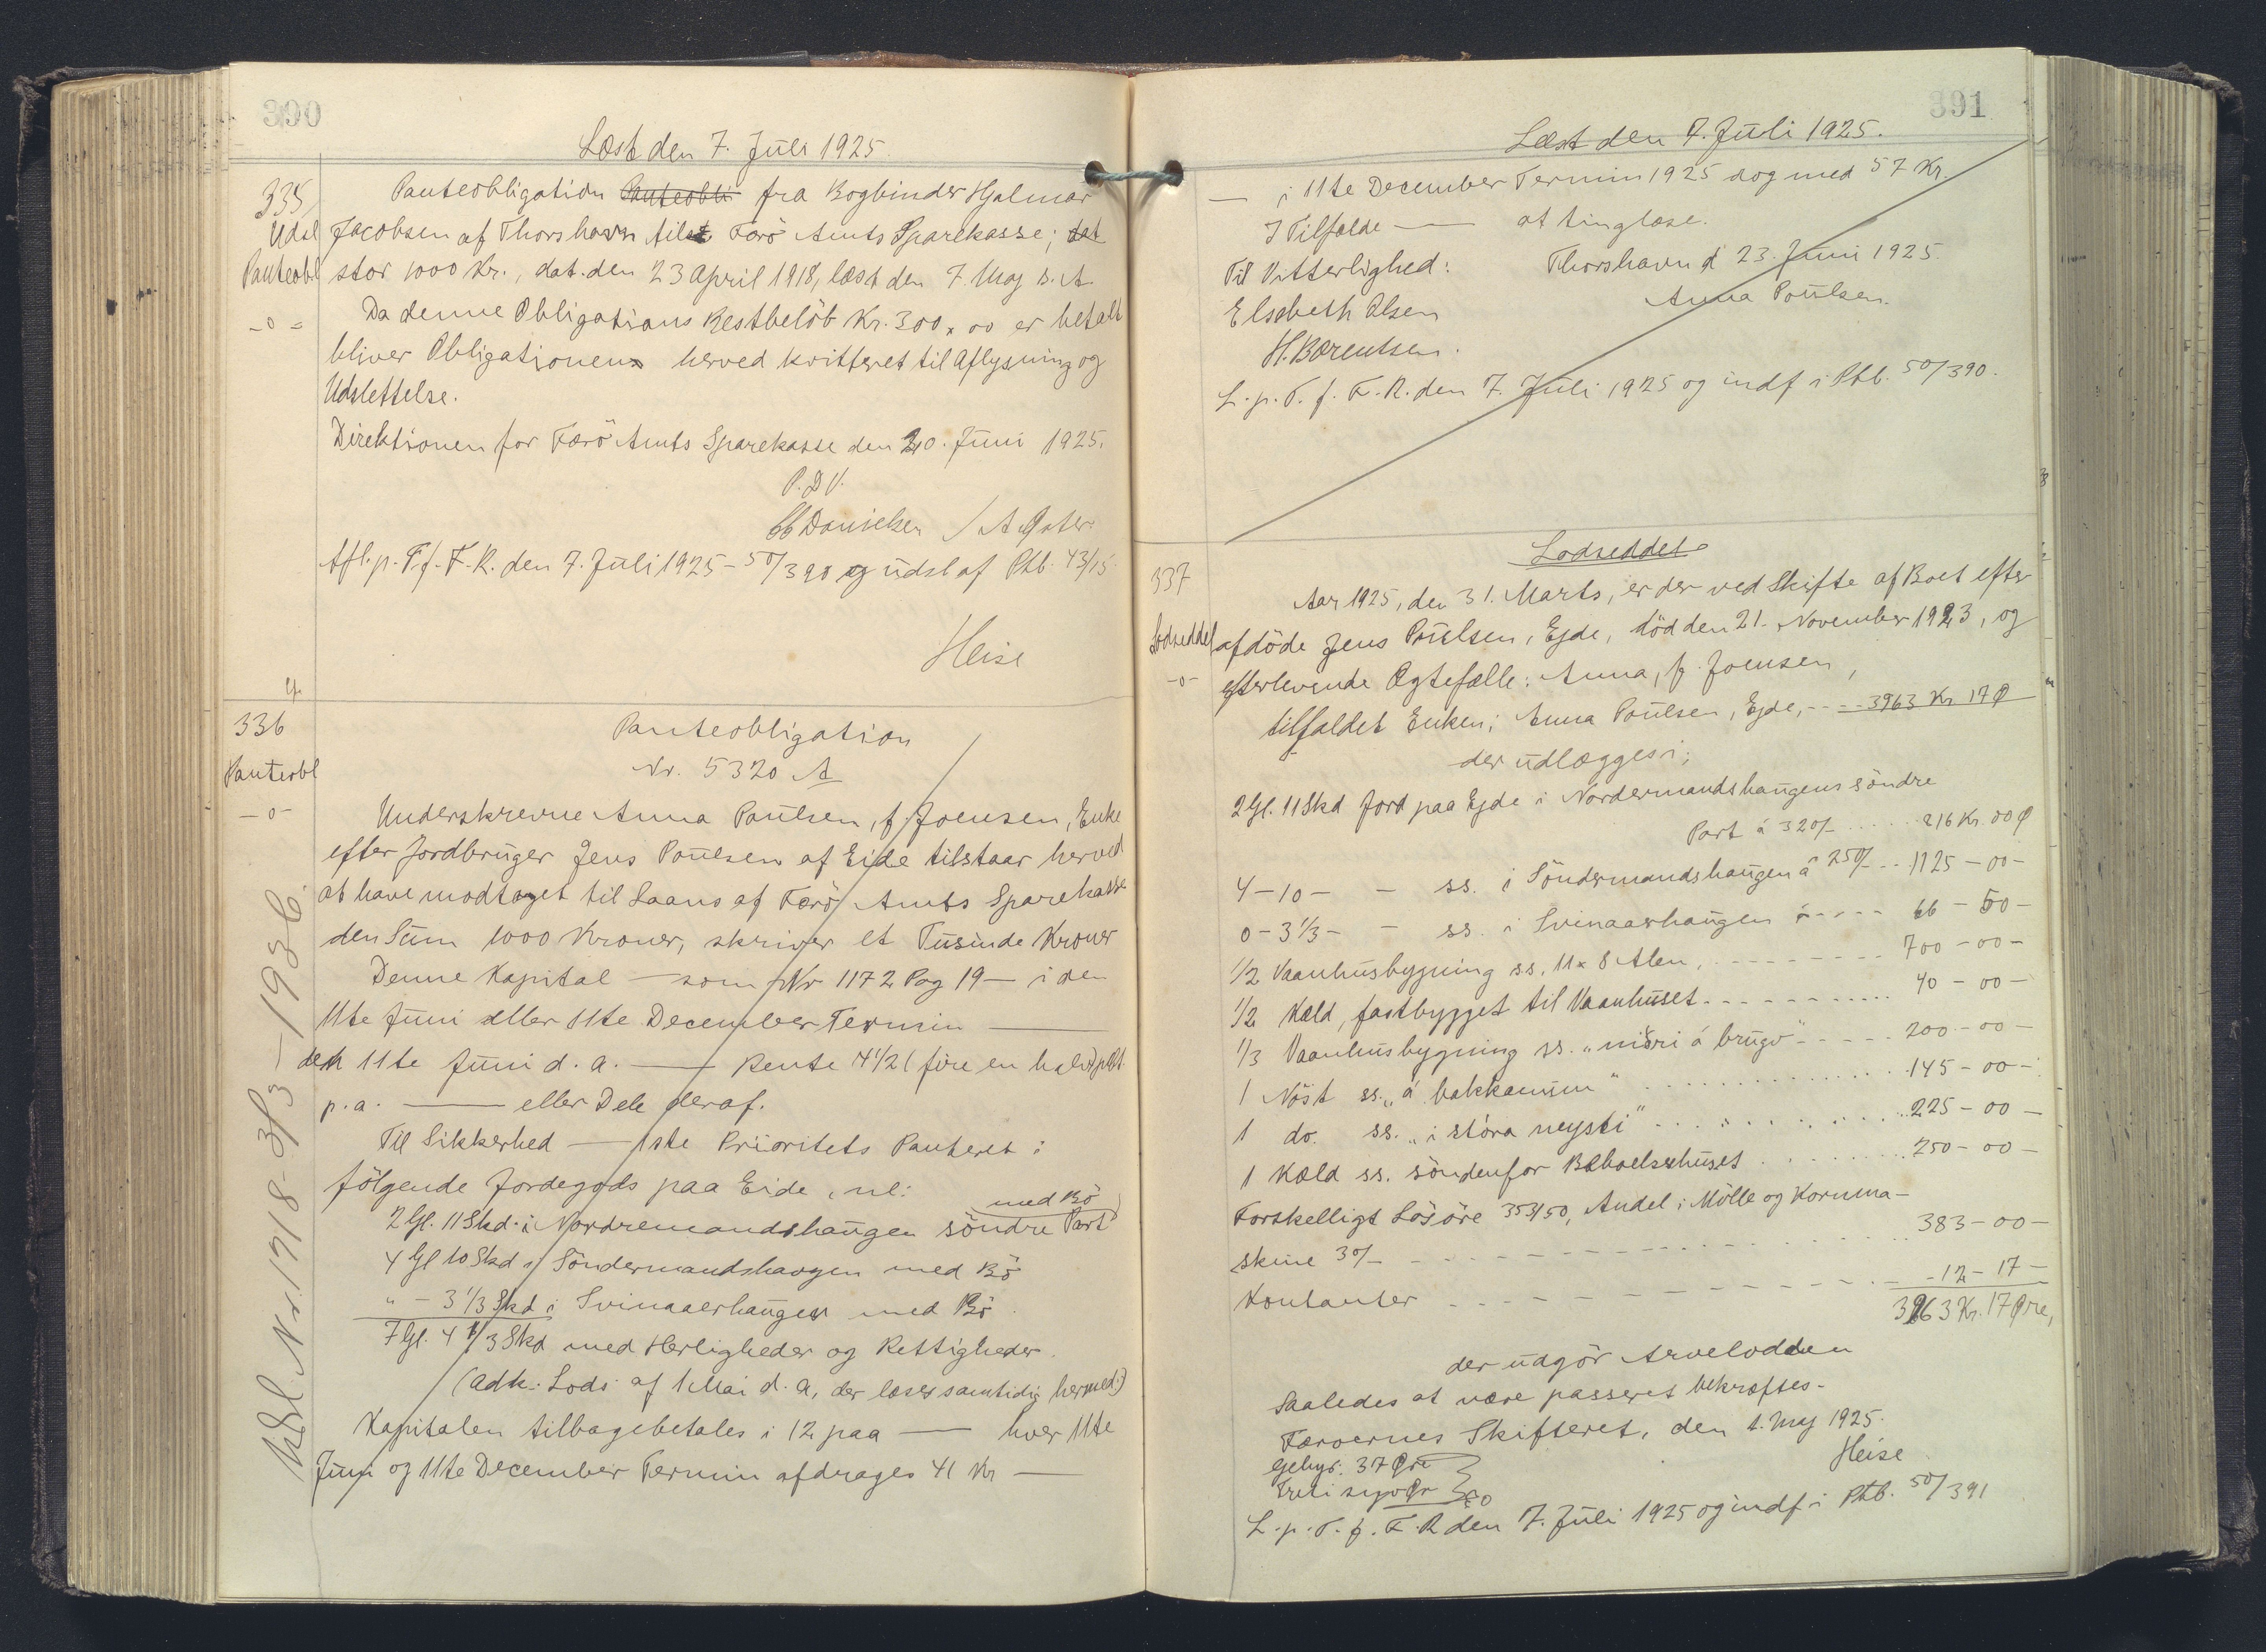 390
Læst den 7. Juli 1925.
335
Udsl
Panteobl
-o-
Panteobligation Panteobli fra Bogbinder Hjalmar
Jacobsen af Thorshavn til Færö Amts Sparekasse; dat
stor 1000 Kr., dat. den 23 April 1918, læst den 7. Maj s. A
Da denne Obligations Restbelöb Kr. 300 x 00 er betalt
bliver Obligationen herved kvitteret til Aflysning og
Udslettelse.
Direktionen for Færö Amts Sparekasse den 20. Juni 1925.
P.D.V.
Danielsen /
Afl. p. T. f. F. R. den 7. Juli 1925 - 50/390 og udsl af Ptb. 43/15
Heise
336
Panteobl
-o-
Panteobligation
Nr. 5320 A
Underskrevne Anna Poulsen, f. Joensen, Enke
efter Jordbruger Jens Poulsen af Eide tilstaar herved
at have modtaget til Laans af Færö Amts Sparekasse
den Sum 1000 Kroner, skriver et Tusinde Kroner
Denne Kapital — som Nr 1172 Pag 19 — i den
11te Juni eller 11te December Termin —
den 11te Juni d. a. — Rente 4 1/2 (fire en halv) pCt.
p. a. — eller Dele deraf.
Til Sikkerhed — 1ste Prioritets Panteret i
fölgende Jordegods paa Eide, nl:
med Bö
2 Gl. 11 Skd. i Nordremandshaugen söndre Part
4 Gl 10 Skd i Söndermandshaugen med Bö
" - 3 1/3 Skd i Svinaaerhaugen med Bö.
7 Gl. 4 1/3 Skd med Herligheder og Rettigheder.
(Adk: Lods. af 1 Mai d. a, der læses samtidig hermed.)
Kapitalen tilbagebetales i 12 paa — hver 11te
Juni og 11te December Termin afdrages 41 Kr —
Udsl. Nr. 1718 - 3/3 - 1936.
391
Læst den 7. Juli 1925.
— i 11te December Termin 1925 dog med 57 Kr.
I Tilfælde — at tinglæse.
Til Vitterlighed: Thorshavn d 23. Juni 1925.
Elsebeth Olsen Anna Poulsen.
H. Bærentsen.
L. p. T. f. F. R. den 7. Juli 1925 og indf i Ptb. 50/390.
337
Lodseddel
-o-
Lodseddel
Aar 1925, den 31. Marts, er der ved Skifte af Boet efter
afdöde Jens Poulsen, Ejde, död den 21. November 1923, og
efterlevende Ægtefælle: Anna, f. Joensen,
tilfaldet Enken; Anna Poulsen, Ejde, - - - 3963 Kr 17 Ø
der udlægges i;
2 Gl. 11 Skd Jord paa Ejde i Nordermandshaugens söndre
Part á 320/- ..... 816 Kr. 00 Ø
4 - 10 - - ss. i Söndermandshaugen á 250/- ... 1125 - 00 -
0 - 3 1/3 - - ss. i Svinaaerhaugen á - - - - 66 - 50 -
1/2 Vaanhusbygning ss. 11 x 8 Alen, - - - - - 700 - 00 -
1/2 Kæld, fastbygget til Vaanhuset - - - - - 40 - 00 -
1/3 Vaanhusbygning ss. "niðri á brugv" - - - - 200 - 00 -
1 Nöst ss. "á bakkanum" ..... 145 - 00 -
1 do. ss. "i stóra neysti" ..... 225 - 00 -
1 Kæld ss. söndenfor Beboelseshuset ..... 250 - 00 -
Forskelligt Lösöre 353/50, Andel i Mölle og Kornma-
skine 30/- - - - - - 383 - 00 -
Kontanter - - - - - - 12 - 17 -
3963 Kr. 17 Øre,
der udgör Arvelodden
Saaledes at være passeret bekræftes.
Færøernes Skifteret, den 1. Maj 1925.
Heise
Gebyr: 37 Øre
L. p. T. f. F. R den 7. Juli 1925 og indf i Ptb. 50/391